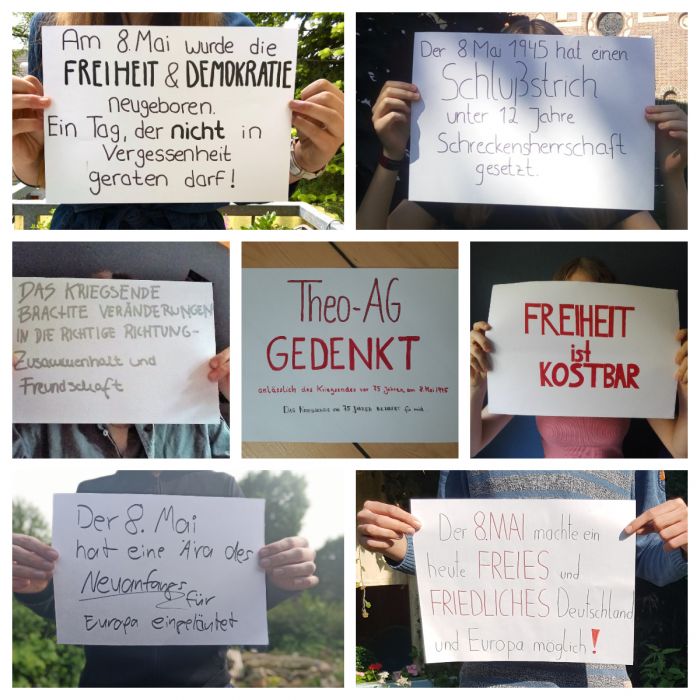 Am 8. Mai wurde die
FREIHEIT & DEMOKRATIE
neugeboren.
Ein Tag, der nicht in
Vergessenheit
geraten darf!
Der 8 Mai 1945 hat einen
Schlußstrich
unter 12 Jahre
Schreckensherrschaft
gesetzt.
DAS KRIEGSENDE
BRACHTE VERÄNDERUNGEN
IN DIE RICHTIGE RICHTUNG-
Zusammenhalt und
Freundschaft
Theo-AG
GEDENKT
anlässlich des Kriegsendes vor 75 Jahren, am 8. Mai 1945
DAS KRIEGSENDE VOR 75 JAHREN BEDEUTET für mich...
FREIHEIT
ist
KOSTBAR
Der 8. Mai
hat eine Ära des
Neuanfangs
für
Europa eingeläutet
Der 8. MAI machte ein
heute FREIES und
FRIEDLICHES Deutschland
und Europa möglich!